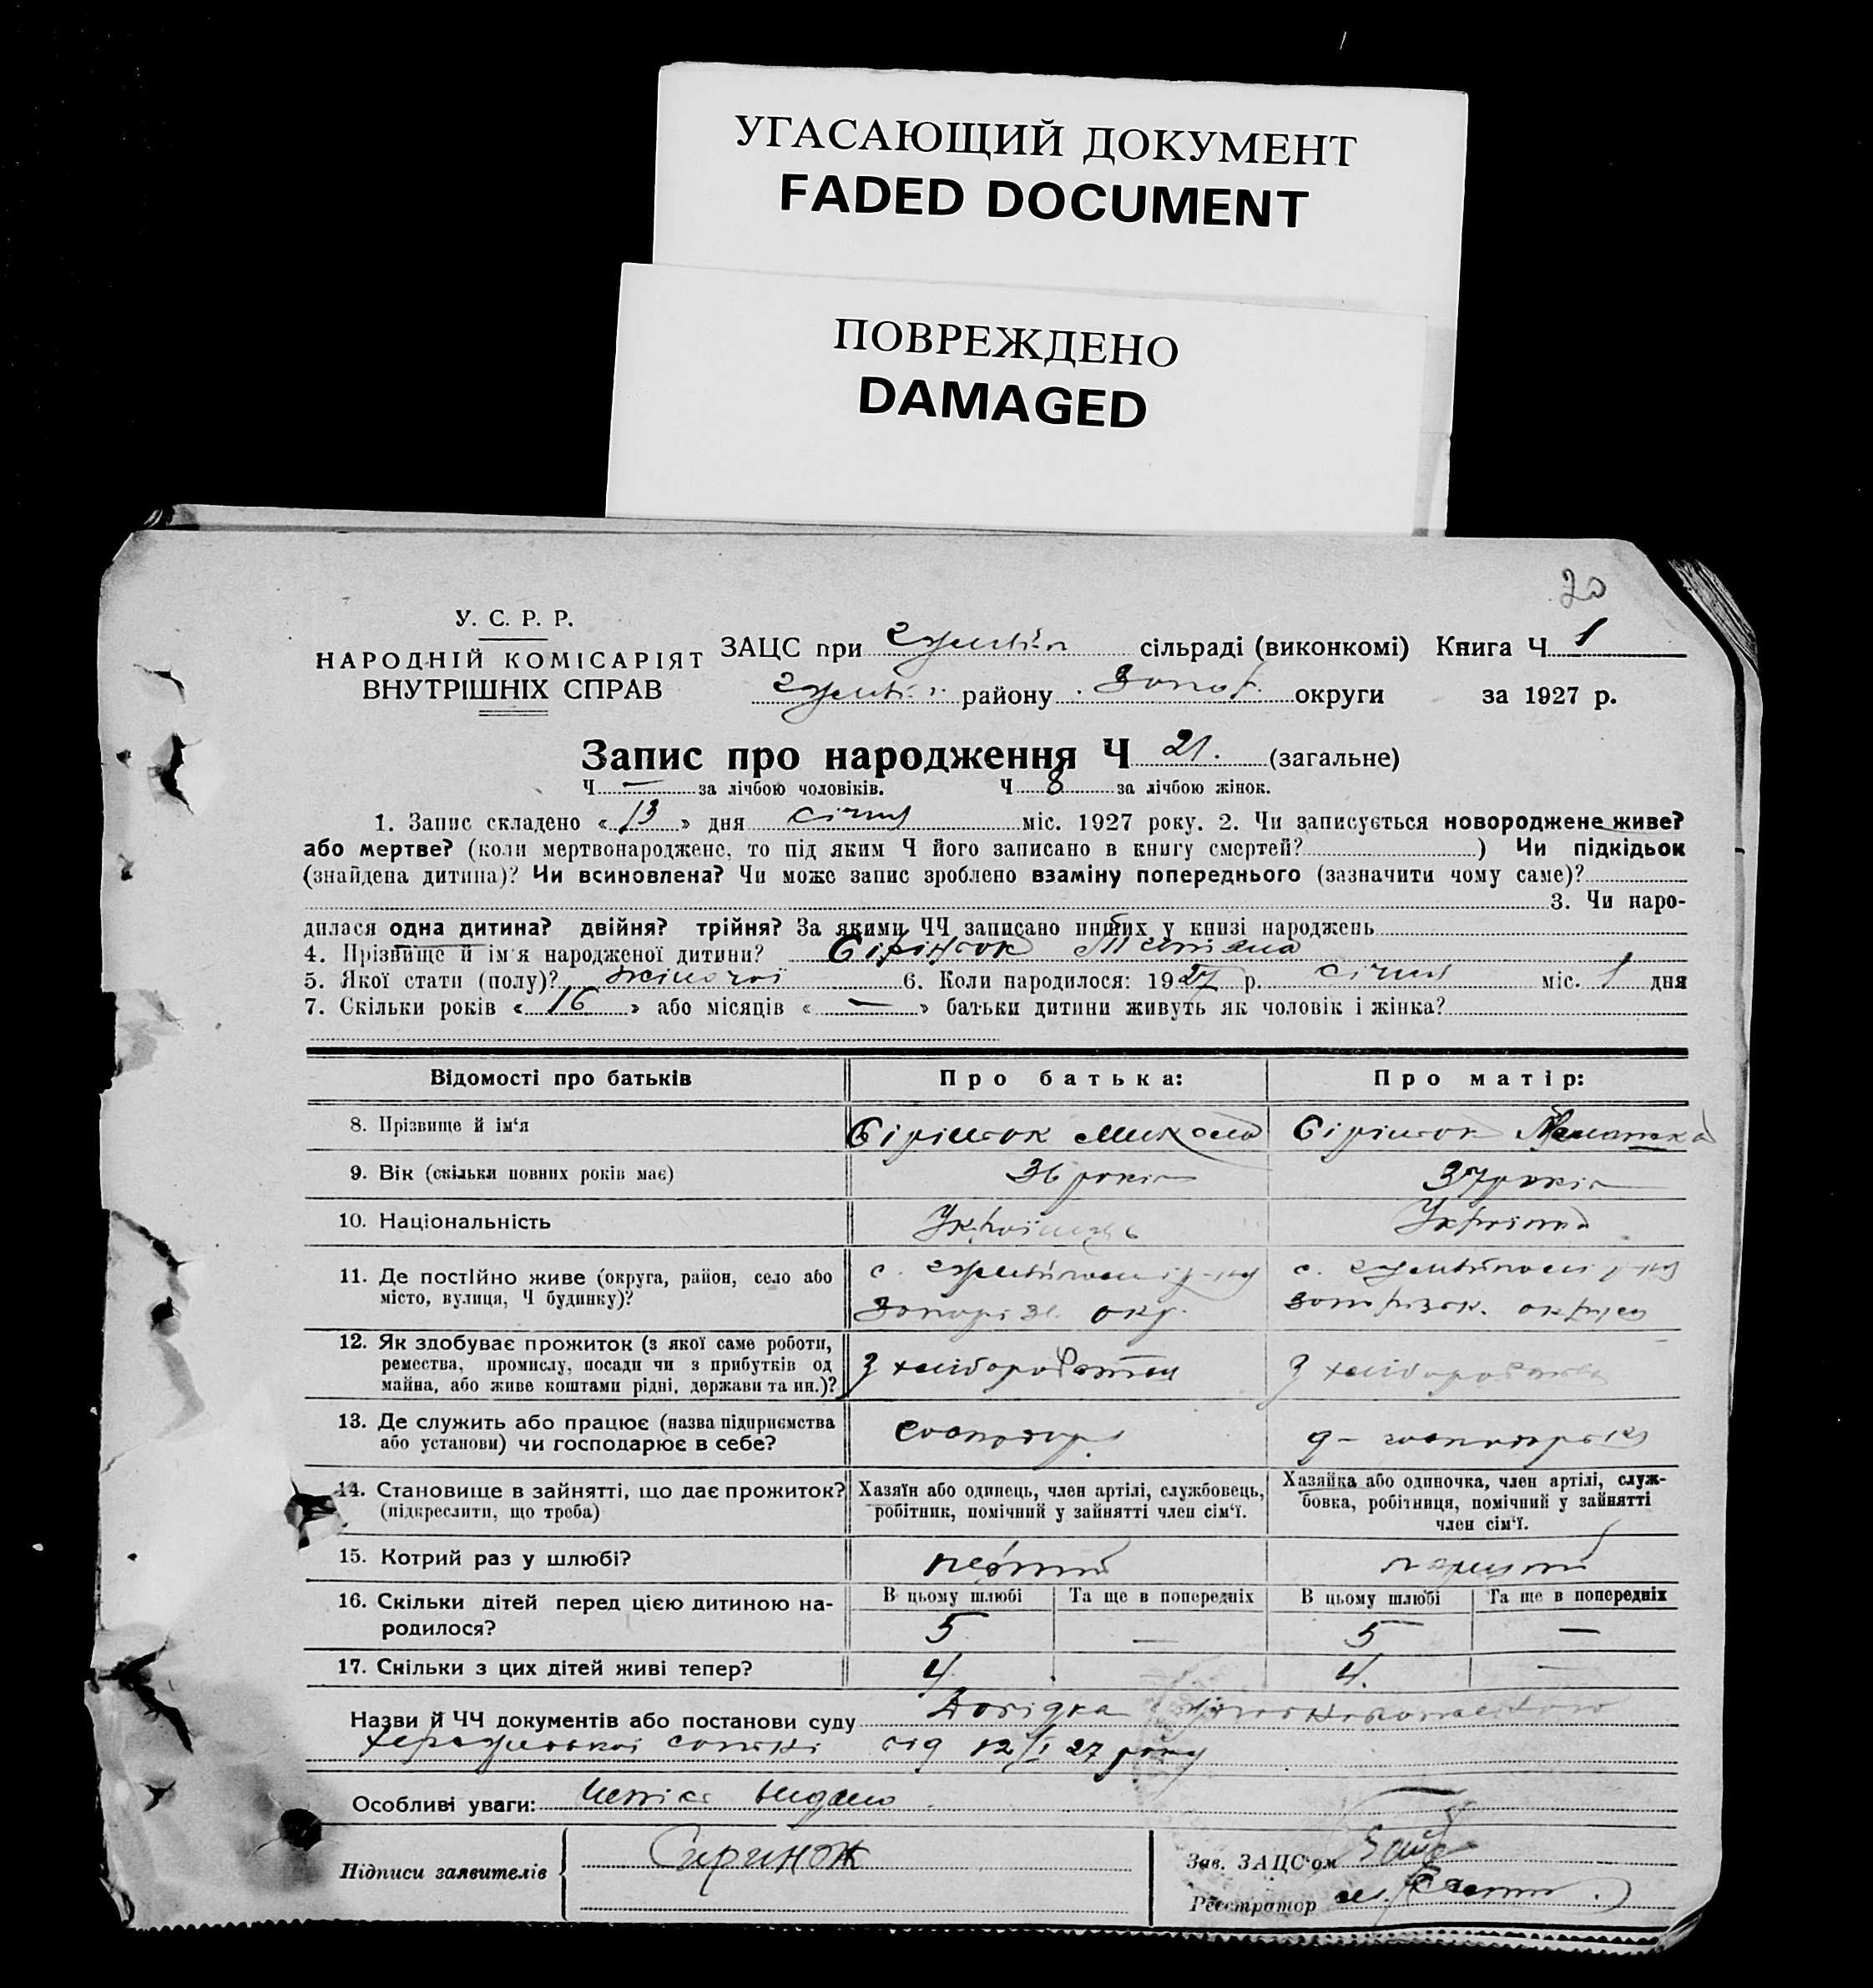 УГАСАЮЩИЙ ДОКУМЕНТ
FADED DOCUMENT
ПОВРЕЖДЕНО
DAMAGED
20
У. С. Р. Р.
НАРОДНІЙ КОМІСАРІЯТ
ВНУТРІШНІХ СПРАВ
ЗАЦС при сільраді (виконкомі) Книга Ч 1
району округи за 1927 р.
Запис про народження Ч 21. (загальне)
Ч — за лічбою чоловіків. Ч 8 за лічбою жінок.
1. Запис складено « 13 » дня січня міс. 1927 року. 2. Чи записується новороджене живе?
або мертве? (коли мертвонароджене, то під яким Ч його записано в книгу смертей? ) Чи підкідьок
(знайдена дитина)? Чи всиновлена? Чи може запис зроблено взаміну попереднього (зазначити чому саме)?
3. Чи наро-
дилася одна дитина? двійня? трійня? За якими ЧЧ записано инших у книзі народжень
4. Прізвище й ім'я народженої дитини? Сірінок Тетяна
5. Якої стати (полу)? жіночої 6. Коли народилося: 1927 р. січня міс. 1 дня
7. Скільки років « 16 » або місяців « — » батьки дитини живуть як чоловік і жінка?
Відомості про батьків Про батька: Про матір:
8. Прізвище й ім'я Сірінок Микола Сірінок
9. Вік (скільки повних років має) 36 років 37 років
10. Національність Українець Українка
11. Де постійно живе (округа, район, село або
місто, вулиця, Ч будинку)?
с. с.
Запоріз. окр. Запорізьк. округа
12. Як здобуває прожиток (з якої саме роботи,
ремества, промислу, посади чи з прибутків од
майна, або живе коштами рідні, держави та ин.)?
З хліборобства З хліборобства
13. Де служить або працює (назва підприємства
або установи) чи господарює в себе?
господар
14. Становище в зайнятті, що дає прожиток?
(підкреслити, що треба)
Хазяїн або одинець, член артілі, службовець,
робітник, помічний у зайнятті член сім'ї.
Хазяйка або одиночка, член артілі, служ-
бовка, робітниця, помічний у зайнятті
член сім'ї.
15. Котрий раз у шлюбі? перший перший
16. Скільки дітей перед цією дитиною на-
родилося?
В цьому шлюбі Та ще в попередніх В цьому шлюбі Та ще в попередніх
5 — 5 —
17. Скільки з цих дітей живі тепер? 4 4. —
Назви й ЧЧ документів або постанови суду Довідка
від 12/I 27 року
Особливі уваги: видано
Підписи заявителів Сиринок
Зав. ЗАЦС'ом
Реєстратор